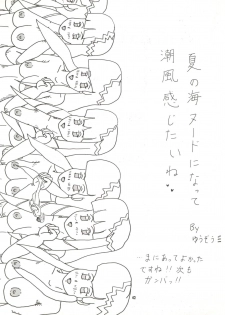 夏の海ヌードになって
潮風感じたいね♥
By
ゆうぞうミ
…まにあってよかった
ですね!!次も
ガンバ!!